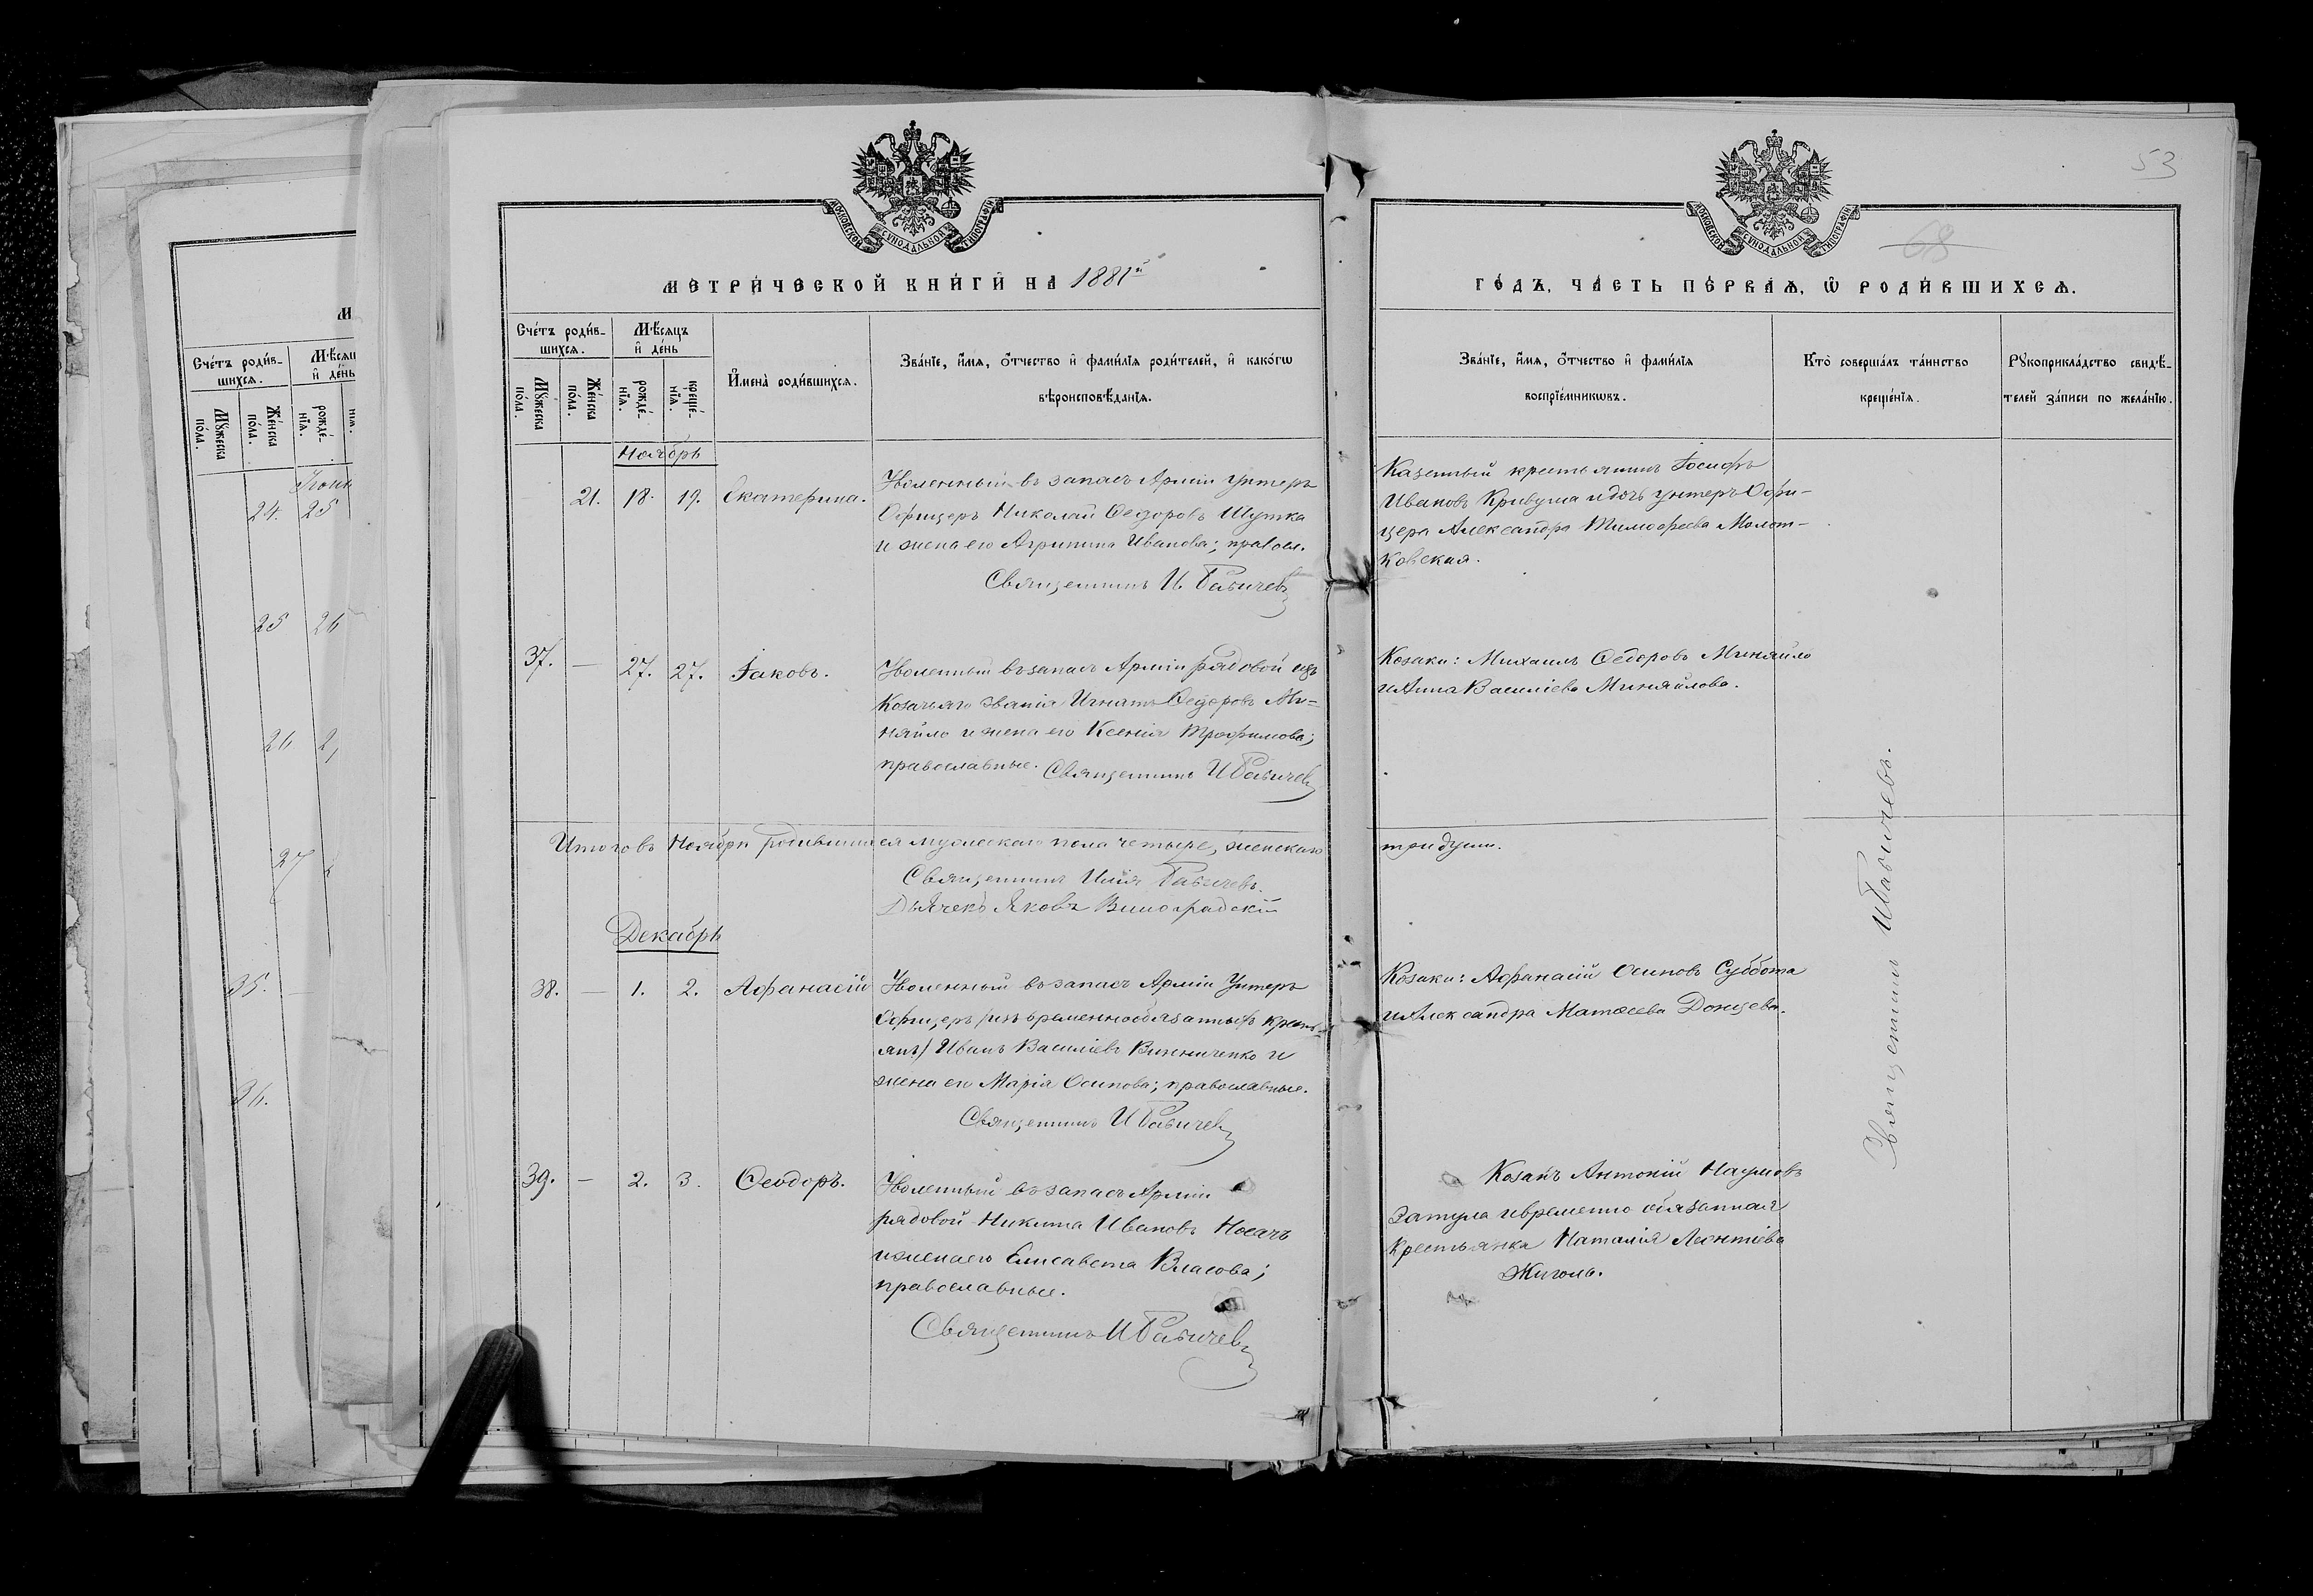 53
68
МОСКОВСКОЙ СѴНОДАЛЬНОЙ ТИПОГРАФІИ
МОСКОВСКОЙ СѴНОДАЛЬНОЙ ТИПОГРАФІИ
МЕТРИ́ЧЕСКОЙ КНИ́ГИ НА 1881й
ГО́ДЪ, ЧА́СТЬ ПЕ́РВАѦ, Ѽ РОДИ́ВШИХСѦ.
Сче́тъ роди́в-
шихсѧ.
Мꙋ́жеска по́ла.
Же́нска по́ла.
Мѣ́сѧцъ
и҆ де́нь
рожде́-нїѧ.
креще́-нїѧ.
И҆мена̀ роди́вшихсѧ.
Зва́нїе, и҆́мѧ, ѻ҆́тчество и҆ фами́лїѧ роди́телей, и҆ како́гѡ
вѣроисповѣ́данїѧ.
Зва́нїе, и҆́мѧ, ѻ҆́тчество и҆ фами́лїѧ
воспрїе́мникѡвъ.
Кто̀ соверша́лъ та́инство
креще́нїѧ.
Рꙋкоприкла́дство свидѣ́-
телей за́писи по жела́нїю.
Ноябрь
21. 18. 19. Екатерина.
Уволенный въ запасъ Арміи унтеръ
Офицеръ Николай Ѳеодоровъ Шутка
и жена его Агрипина Иванова; правосл.
Священникъ И.
Казенный крестьянинъ Іосифъ
Ивановъ Кривуша и дочь унтеръ Офи-
цера Александра Тимоѳеева Молот-
ковская.
37. — 27. 27. Іаковъ.
Уволенный въ запасъ Арміи рядовой изъ
Козачьяго званія Игнатъ Ѳеодоровъ Ми-
няйло и жена его Ксенія Трофимова;
православные. Священникъ И
Козаки: Михаилъ Ѳеодоровъ Миняйло
и Анна Василіева Миняйлова.
Итого въ Ноябрѣ родившихся мужескаго пола четыре, женскаго
три души.
Священникъ Илія
Дьячекъ Яковъ Виноградскій
Декабрь
38. — 1. 2. Афанасій
Уволенный въ запасъ Арміи Унтеръ
Офицеръ (изъ временнообязанныхъ кресть-
янъ) Иванъ Василіевъ Винниченко и
жена его Марія Осипова; православные.
Священникъ И
Козаки: Афанасій Осиповъ Суббота
и Александра Матѳеева Донцева.
39. — 2. 3. Ѳеодоръ.
Уволенный въ запасъ Арміи
рядовой Никита Ивановъ Носачъ
и жена его Елисавета Власова;
православные.
Священникъ И
Козакъ Антоній Наумовъ
Затула и временно обязанная
Крестьянка Наталія Леонтіева
Жиголь.
Священникъ И
Сче́тъ роди́в-
шихсѧ.
Мꙋ́жеска по́ла.
Же́нска по́ла.
рожде́-нїѧ.
24. 25
25 26
26
27
35. —
36.